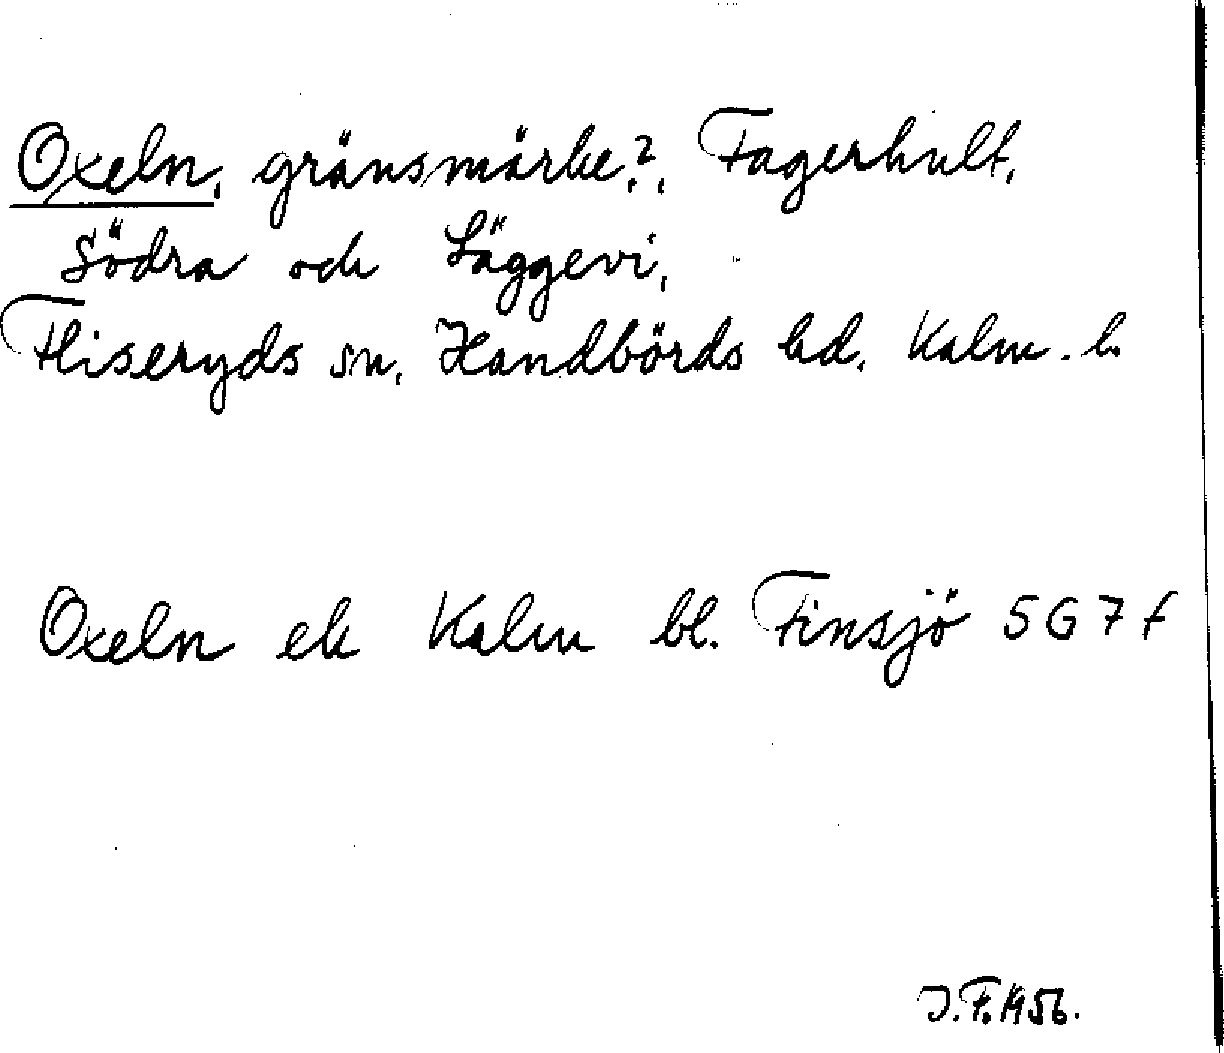 Oxeln, gränsmärke?, Fagerhult,
Södra och Läggevi,
Fliseryds sn, Handbörds hd, Kalm. l.
Oxeln ek Kalm bl. Finsjö 5G 7f
J.F. 1956.